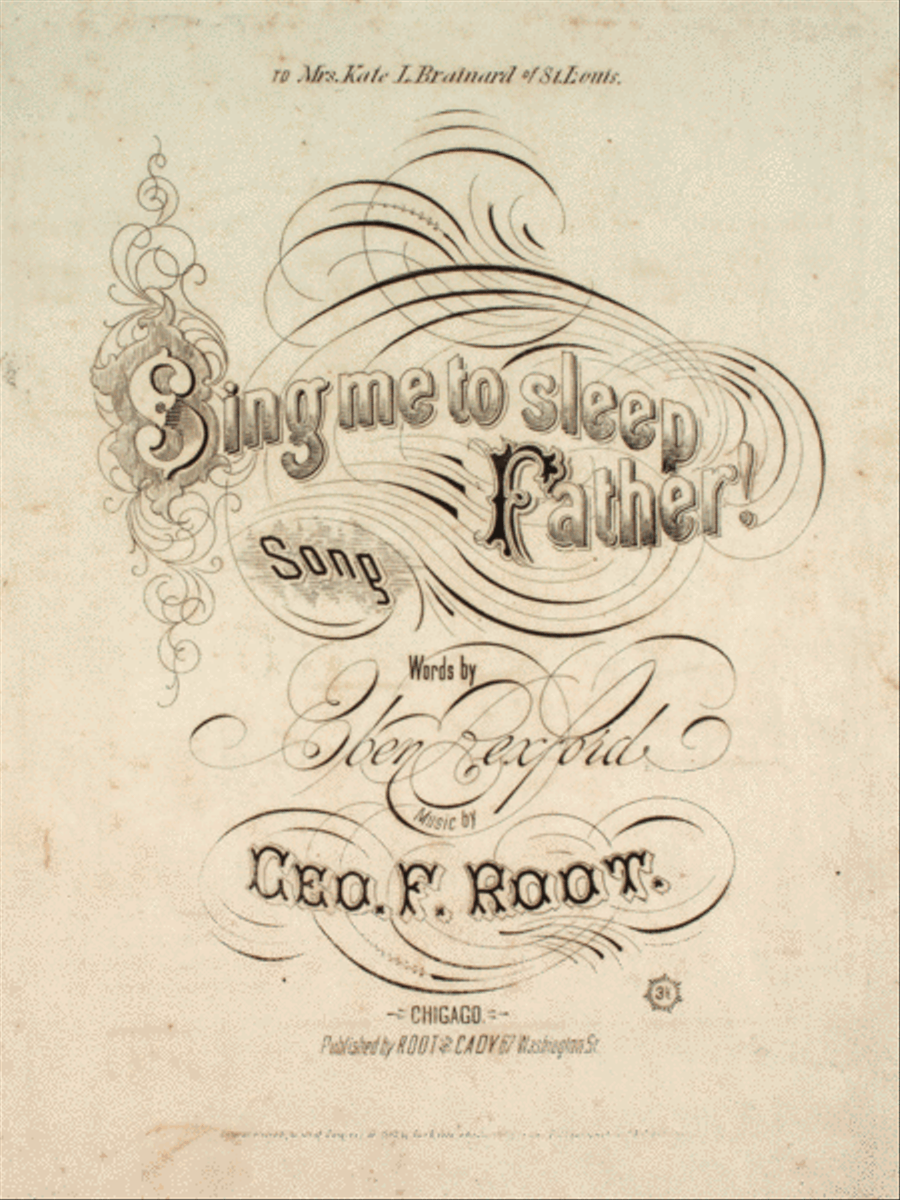 TO Mrs. Kate L. Brainard of St. Louis.
Sing me to sleep
Father!
Song
Words by
Eben Rexford
Music by
GEO. F. ROOT.
3
CHICAGO.
Published by ROOT & CADY 67 Washington St.